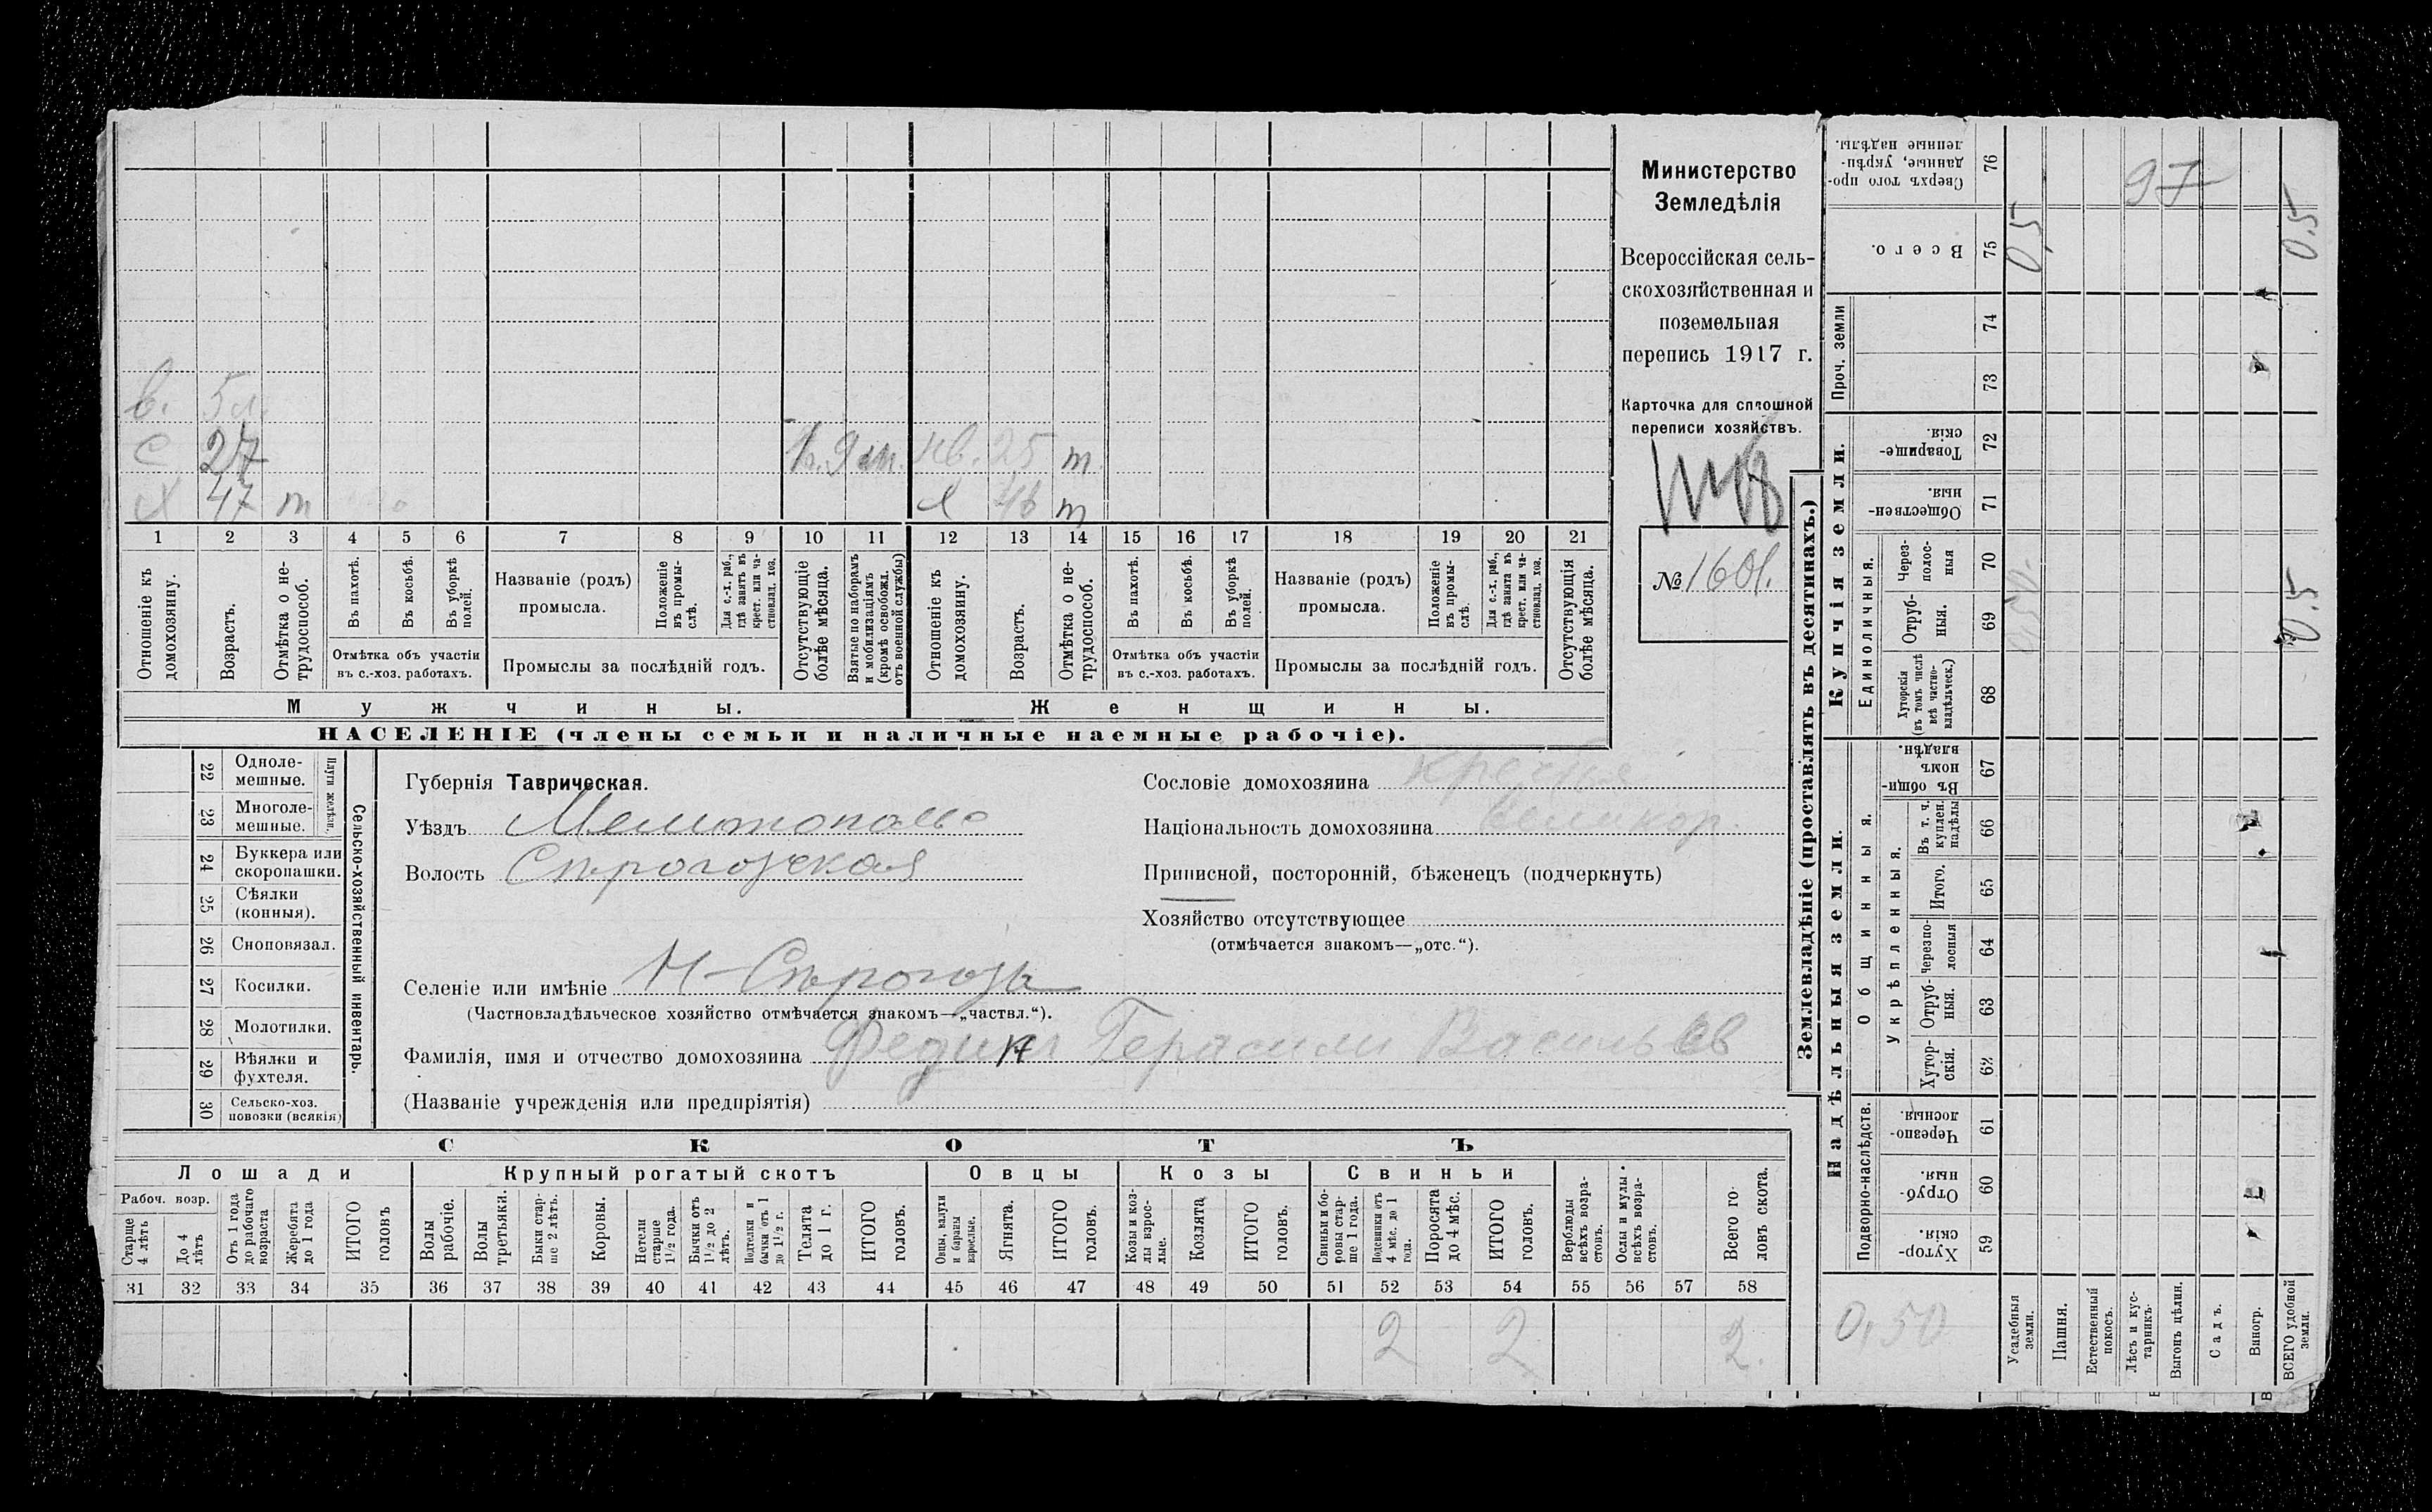 в. 5 л.
С 27 1 в. 9 м. нв. 25 т
Х 47 т Х 46 т
1 2 3 4 5 6 7 8 9 10 11 12 13 14 15 16 17 18 19 20 21
Отношеніе къ домохозяину.
Возрастъ.
Отмѣтка о не-
трудоспособ.
Въ пахотѣ.
Въ косьбѣ.
Въ уборкѣ
полей.
Отмѣтка объ участіи
въ с.-хоз. работахъ.
Названіе (родъ)
промысла.
Положеніе
въ промы-
слѣ.
Для с.-х. раб.,
гдѣ занятъ въ
крест. или ча-
стновлад. хоз.
Промыслы за послѣдній годъ.
Отсутствующіе
болѣе мѣсяца.
Взятые по наборамъ
и мобилизаціямъ
(кромѣ освобожд.
отъ военной службы)
Отношеніе къ
домохозяину.
Возрастъ.
Отмѣтка о не-
трудоспособ.
Въ пахотѣ.
Въ косьбѣ.
Въ уборкѣ
полей.
Отмѣтка объ участіи
въ с.-хоз. работахъ.
Названіе (родъ)
промысла.
Положеніе
въ промы-
слѣ.
Для с.-х. раб.,
гдѣ занята въ
крест. или ча-
стновлад. хоз.
Промыслы за послѣдній годъ.
Отсутствующія
болѣе мѣсяца.
Мужчины.
Женщины.
НАСЕЛЕНІЕ (члены семьи и наличные наемные рабочіе).
Министерство
Земледѣлія
Всероссійская сель-
скохозяйственная и
поземельная
перепись 1917 г.
Карточка для сплошной
переписи хозяйствъ.
№ 1601.
22 Одноле-
мешные.
23 Многоле-
мешные.
Плуги желѣзн.
24 Буккера или
скоропашки.
25 Сѣялки
(конныя).
26 Сноповязал.
27 Косилки.
28 Молотилки.
29 Вѣялки и
фухтеля.
30 Сельско-хоз.
повозки (всякія)
Сельско-хозяйственный инвентарь.
Губернія Таврическая.
Уѣздъ Мелитополь
Волость Сѣрогозская
Сословіе домохозяина
Національность домохозяина Великор.
Приписной, посторонній, бѣженецъ (подчеркнуть)
Хозяйство отсутствующее
(отмѣчается знакомъ—„отс.“).
Селеніе или имѣніе Н-Сѣрогозы
(Частновладѣльческое хозяйство отмѣчается знакомъ—„частвл.“).
Фамилія, имя и отчество домохозяина Федин Герасим Васильев
(Названіе учрежденія или предпріятія)
СКОТЪ
Лошади
Крупный рогатый скотъ
Овцы
Козы
Свиньи
Рабоч. возр.
Старше
4 лѣтъ
До 4
лѣтъ
Отъ 1 года
до рабочаго
возраста
Жеребята
до 1 года
ИТОГО
головъ
Волы
рабочіе.
Волы
третьяки.
Быки стар-
ше 2 лѣтъ.
Коровы.
Нетели
старше
1½ года.
Бычки отъ
1½ до 2
лѣтъ.
Подтелки и
бычки отъ 1
до 1½ г.
Телята
до 1 г.
ИТОГО
головъ.
Овцы, валухи
и бараны
взрослые.
Ягнята.
ИТОГО
головъ.
Козы и коз-
лы взрос-
лые.
Козлята
ИТОГО
головъ.
Свиньи и бо-
ровы стар-
ше 1 года.
Подсвинки отъ
4 мѣс. до 1
года.
Поросята
до 4 мѣс.
ИТОГО
головъ.
Верблюды
всѣхъ возра-
стовъ.
Ослы и мулы
всѣхъ возра-
стовъ.
Всего го-
ловъ скота.
31 32 33 34 35 36 37 38 39 40 41 42 43 44 45 46 47 48 49 50 51 52 53 54 55 56 57 58
2 2 2.
Землевладѣніе (проставлять въ десятинахъ.)
Надѣльныя земли.
Купчія земли.
Проч. земли
Подворно-наслѣдств.
Общинныя.
Укрѣпленныя.
Единоличныя.
Сверхъ того про-
данные, укрѣп-
ленные надѣлы.
76
97
Всего.
75
0,5
0.5
74
73
Товарище-
скія.
72
Обществен-
ныя.
71
Через-
полос-
ныя
70
Отруб-
ныя.
69
0.50.
0.5
Хуторскія
(въ томъ числѣ
всѣ частно-
владѣльческ.)
68
Въ общи-
номъ
владѣн.
67
Въ т. ч.
куплен.
надѣлы
66
Итого.
65
Черезпо-
лосныя
64
Отруб-
ныя.
63
Хутор-
скія.
62
Черезпо-
лосныя.
61
Отруб-
ныя.
60
Хутор-
скія.
59
0,50
Усадебныя
земли.
Пашня.
Естественный
покосъ.
Лѣсъ и кус-
тарникъ.
Выгонъ цѣлин.
Садъ.
Виногр.
ВСЕГО удобной
земли.